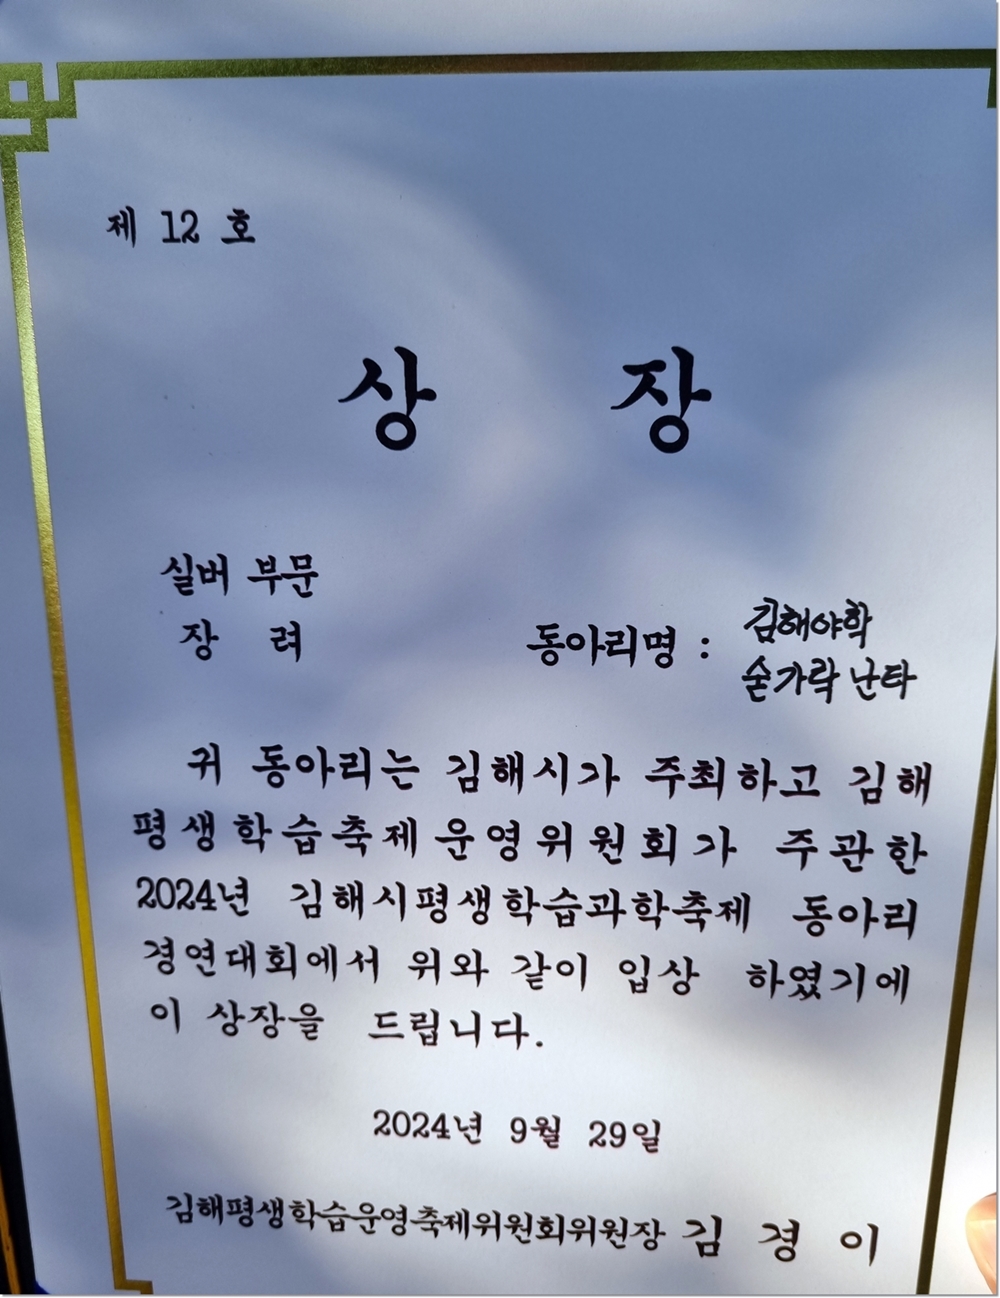 제 12 호
상 장
실버 부문
장 려
동아리명 : 김해야학
숟가락 난타
귀 동아리는 김해시가 주최하고 김해
평생학습축제운영위원회가 주관한
2024년 김해시평생학습과학축제 동아리
경연대회에서 위와 같이 입상 하였기에
이 상장을 드립니다.
2024년 9월 29일
김해평생학습운영축제위원회위원장 김 경 이